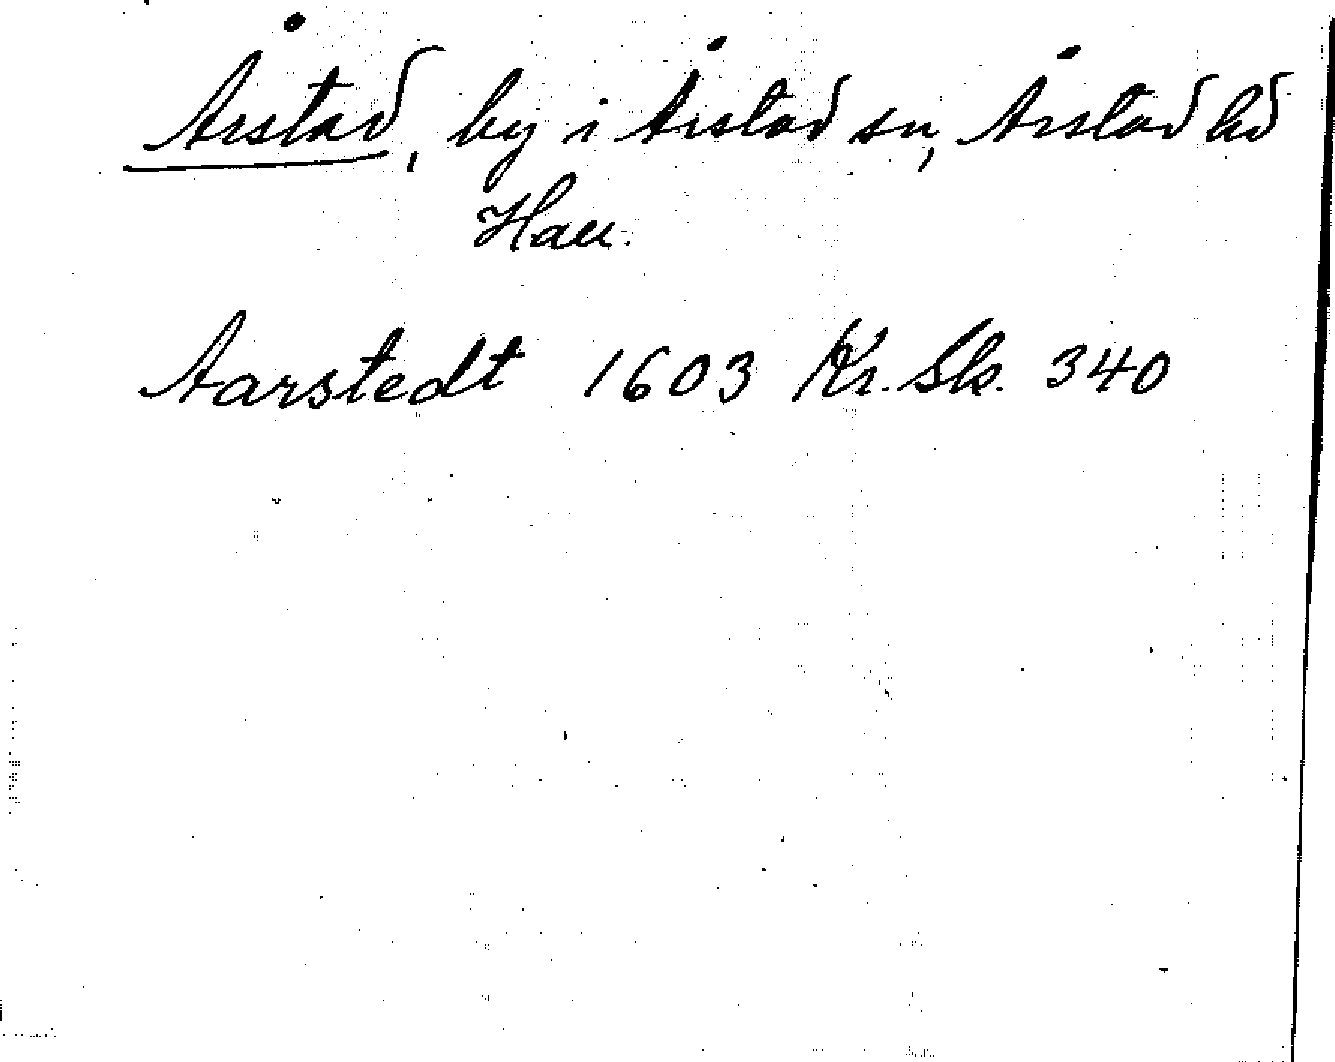 Årstad, by i Årstad sn, Årstad hd
Hall.
Aarstedt 1603 Kr. Sk. 340